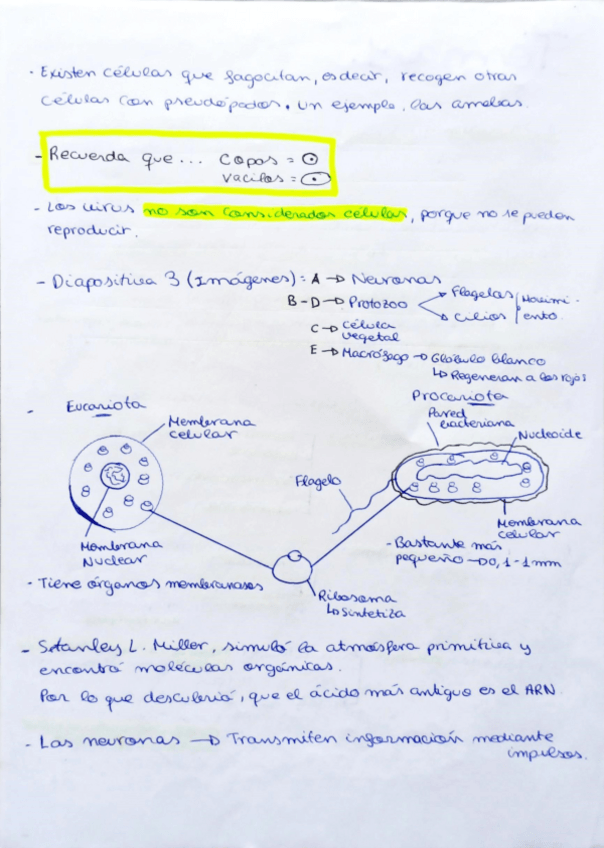 · Existen células que fagocitan, es decir, recogen otras
células con pseudópodos. Un ejemplo, las amebas.
- Recuerda que... Copos =
Vacilos =
- Los virus no son considerados células, porque no se pueden
reproducir.
- Diapositiva 3 (Imágenes): A → Neuronas
B-D → Protozoo
Flagelos
Cilios
Movimi-
ento.
C → célula
vegetal
E → Macrófago → Glóbulo blanco
↳ Regeneran a los rojos
- Eucariota
Membrana
celular
Membrana
Nuclear
Procariota
Pared
bacteriana
Nucleoide
Flagelo
Membrana
celular
- Bastante más
pequeño → 0,1-1mm
- Tiene órganos membranosos
Ribosoma
↳ Sintetiza
- Stanley L. Miller, simuló la atmósfera primitiva y
encontró moléculas orgánicas.
Por lo que descubrió, que el ácido más antiguo es el ARN.
- Las neuronas → Transmiten información mediante
impulsos.